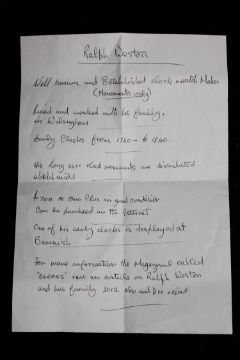 Ralph Weston
Well known and Established clock Maker
(Movements only)
Lived and worked with his family,
in Wolsingham
Early Clocks from 1760 - to 1840
His Long case clock movements are distributed
world wide
£700 to 1300 Plus in good condition
Can be purchased on the Internet
One of his early clocks is displayed at
Beamish
For more information the Magazine called
"CLOCKS" ran an article on Ralph Weston
and his family 2012. Nov and Dec issue